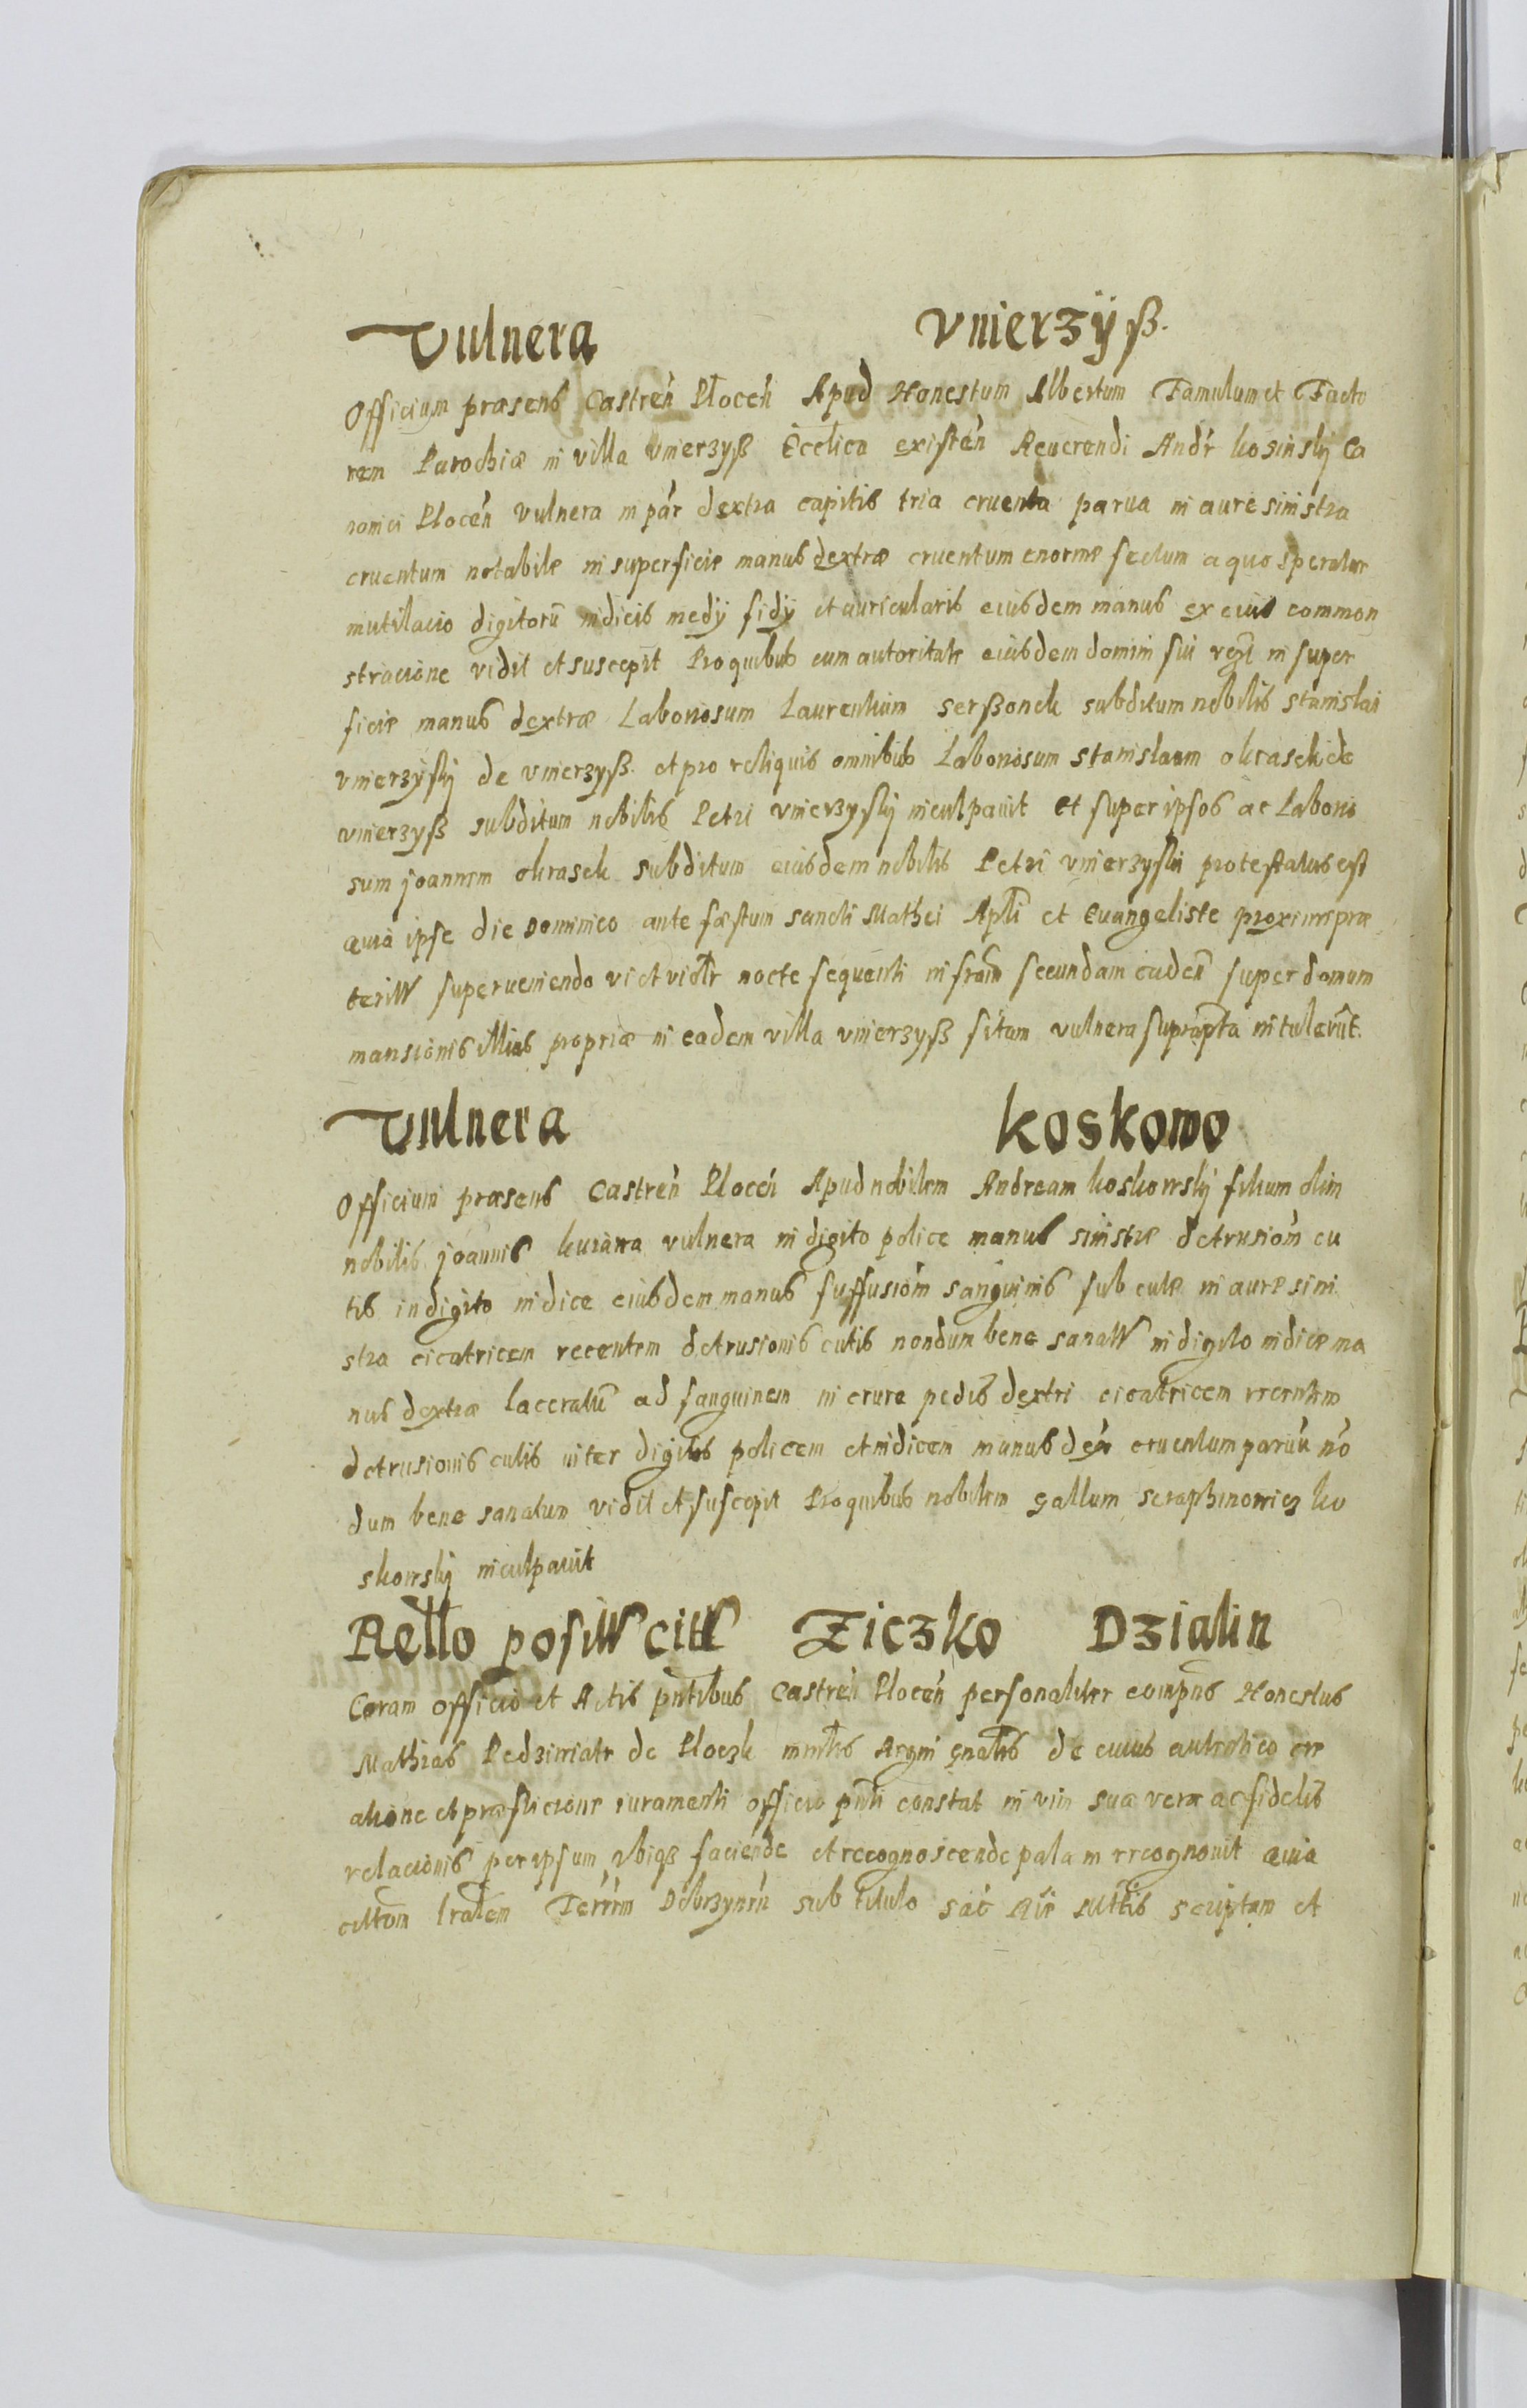 Vulnera Vnierzÿß.
Officium præsens Castreń Płoceń Apud Honestum Albertum Famulum et Facto
rem Parochiæ in villa Vnierzyß Ecclica existeń Reuerendi Andr kosinskij Ca
nonici Ploceń Vulnera in par dextra capitis tria cruenta parua in aure sinistra
cruentum notabile in superficie manus dextræ cruentum enorme sectum a quo speratur
mutilacio digitorū indicis medij fidij et auricularis eiusdem manus ex eius common
stracione vidit et suscepit Pro quibus cum autoritate eiusdem domini sui in super
ficie manus dextræ Laboriosum Laurentium serßonek subditum nobilis stanislai
vnierzÿskij de vnierzyß. et pro reliquis omnibus Laboriosum stanislaum okrasek de
vnierzyß subditum nobilis Petri vnierzyskij inculpauit Et super ipsos ac Laborio
sum joannem okrasek subditum eiusdem nobilis Petri vnierzyski protestatus est
quia ipse die Dominico ante fæstum sancti Mathei Apli et Euangeliste proxime præ
terito superueniendo vi et violtr nocte sequenti in secundam eadem super domum
mansionis illius propriæ in eadem villa vnierzyß sitam vulnera suprapta intulerūt.
Vulnera Koskowo
Officium præsens Castreń Płoceń Apud nobilem Andream koskowskij filium olim
nobilis joannis kurawa vulnera in digito police manus sinistræ detrusiom cu
tis in digito indice eiusdem manus suffusiom sanguinis sub cute in aure sini
stra cicatricem recentem detrusionis cutis nondum bene sanat in digito indice ma
nus dextræ laceratū ad sanguinem in crure pedis dextri cicatricem recentem
detrusionis cutis inter digitos policem et indicem manus dex cruentum paruū nō
dum bene sanatum vidit et suscepit Pro quibus nobilem gallum seraphinowicz ko
skowskij inculpauit
Rello posit citt Ziczko Dzialin
Coram officio et Actis pntibus Castreń Płoceń personaliter compns Honestus
Mathias Pedziwiatr de Ploczk mnrlis Regni gnalis de cuius autentico cre
atione et præsticione iuramenti officio pnti constat in vim suæ veræ ac fidelis
relacionis per ipsum vbiqȝ faciende et recognoscende palam recognouit Quia
citton lralem Terrem Dobrzynen sub titulo sac Rie Mttis scriptam et